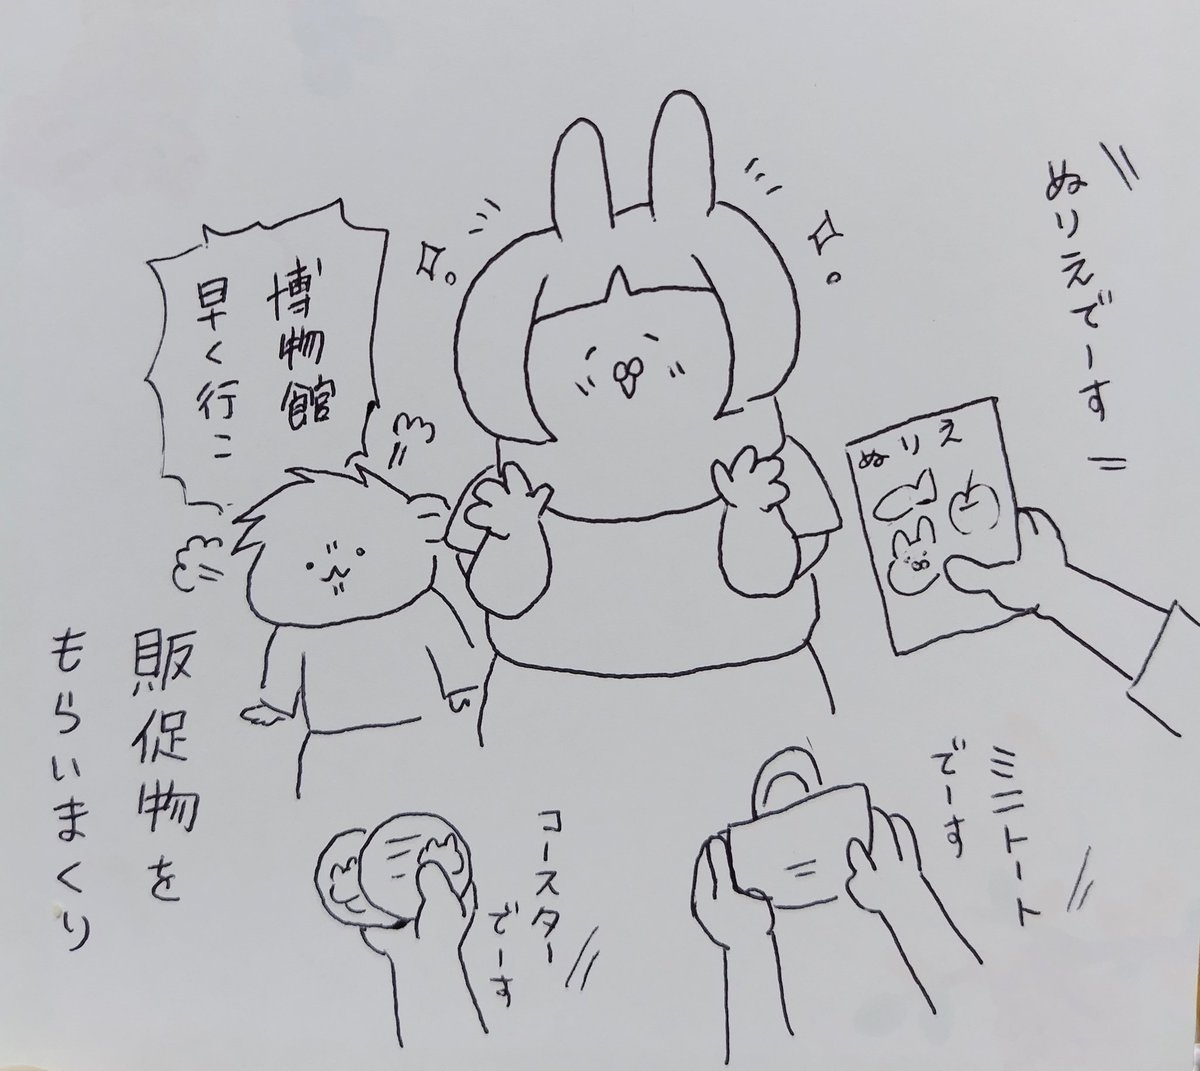 ぬりえでーす
ぬりえ
博物館
早く行こ
ミニトート
でーす
コースター
でーす
販促物を
もらいまくり